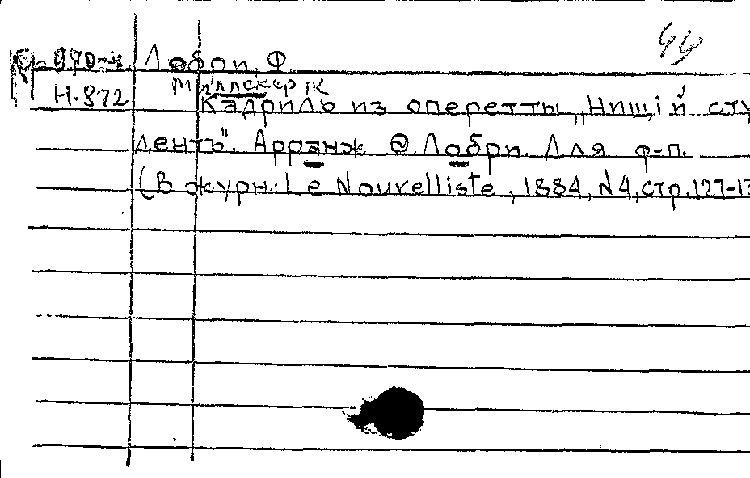 Лобри, Ф.
44
Н-872
Миллекер К
Кадриль из оперетты „Нищій сту
дентъ". Арранж Ф Лобри. Для ф-п.
(В журн: Le Nouvelliste, 1884, №4, стр. 127-13